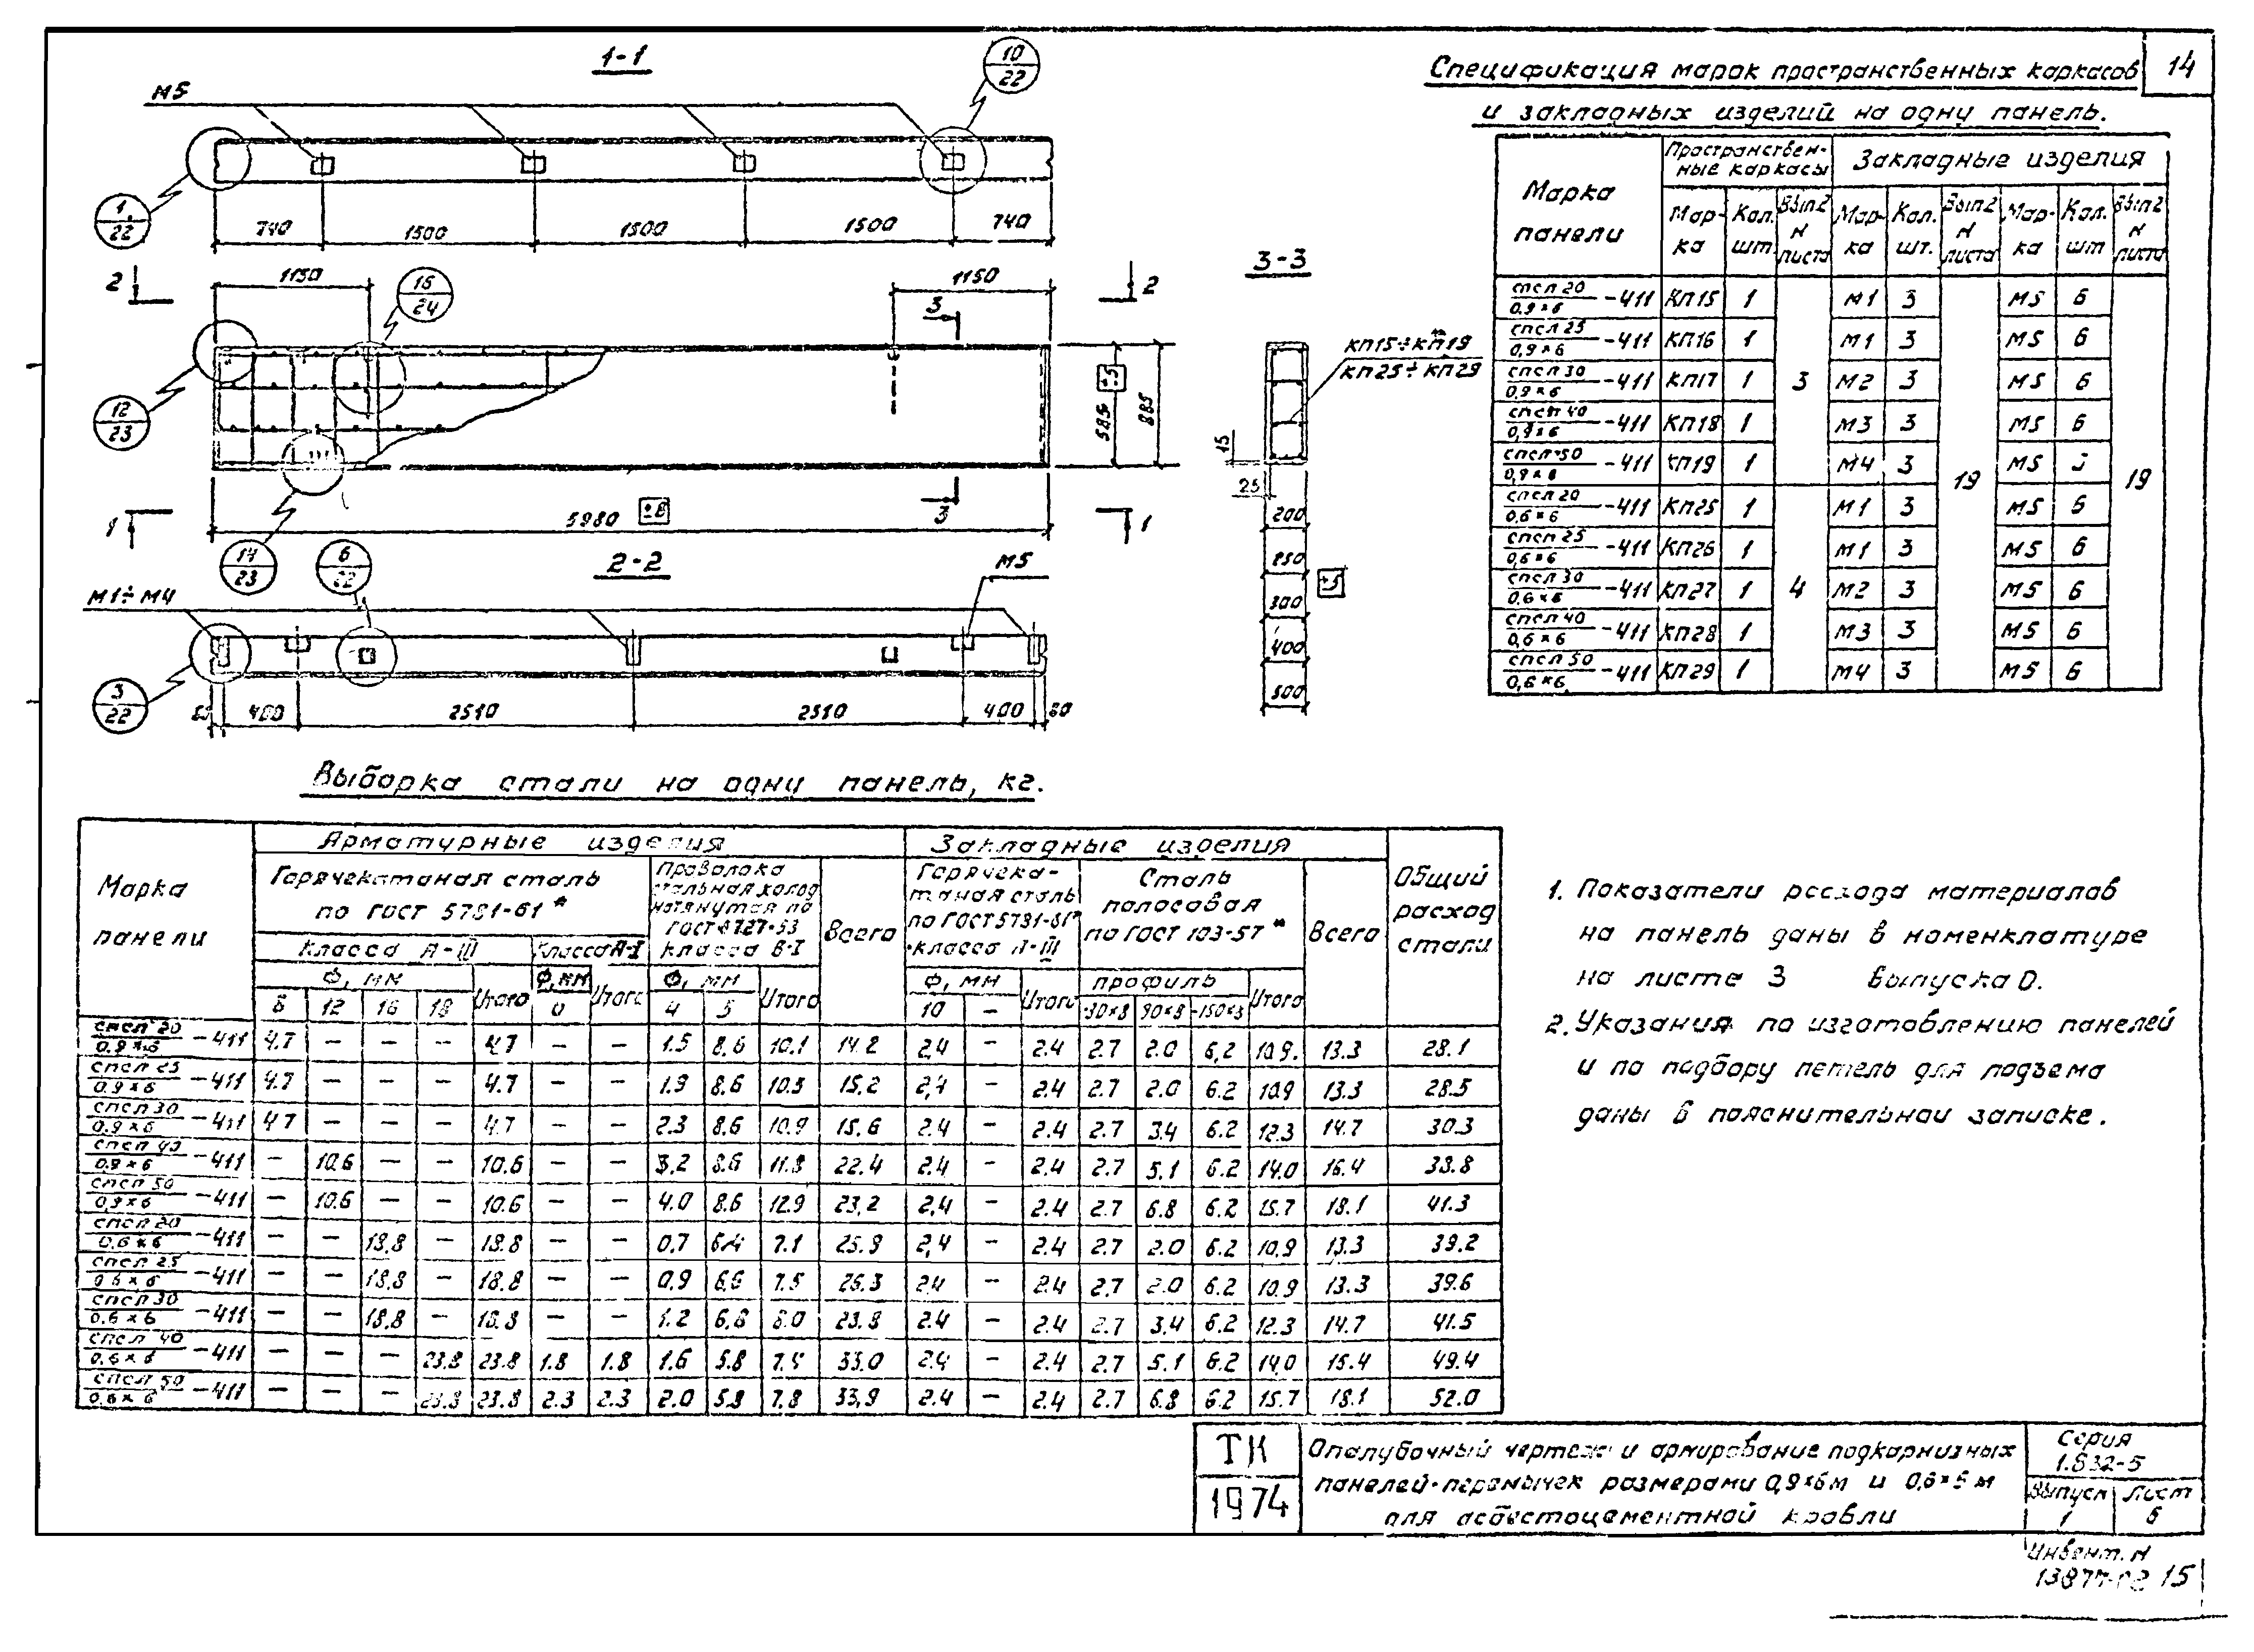 14
Спецификация марок пространственных каркасов
и закладных изделий на одну панель.
Марка панели
Пространственные каркасы
Закладные изделия
Марка Кол. шт. Вып.2 N листа Марка Кол. шт. Вып.2 N листа Марка Кол. шт. Вып.2 N листа
спсл 20 / 0,9×6 -411 КП15 1 3 М1 3 19 М5 6 19
спсл 25 / 0,9×6 -411 КП16 1 М1 3 М5 6
спсл 30 / 0,9×6 -411 КП17 1 М2 3 М5 6
спсл 40 / 0,9×6 -411 КП18 1 М3 3 М5 6
спсл 50 / 0,9×6 -411 КП19 1 М4 3 М5
спсл 20 / 0,6×6 -411 КП25 1 4 М1 3 М5 6
спсл 25 / 0,6×6 -411 КП26 1 М1 3 М5 6
спсл 30 / 0,6×6 -411 КП27 1 М2 3 М5 6
спсл 40 / 0,6×6 -411 КП28 1 М3 3 М5 6
спсл 50 / 0,6×6 -411 КП29 1 М4 3 М5 6
1-1
М5
10/22
1/22
740 1500 1500 1500 740
2 1150 15/24 1150 2
3
12/23
585 ±5 885
14/23
1 5980 ±8 3 1
3-3
КП15÷КП19
КП25÷КП29
15
25
200
250
300
400
500
±5
2-2
6/22
М1÷М4
М5
3/22
400 2510 2510 400
Выборка стали на одну панель, кг.
Марка панели
Арматурные изделия
Закладные изделия
Общий расход стали
Горячекатаная сталь по ГОСТ 5781-61*
Проволока стальная холоднотянутая по ГОСТ 6727-53 класса В-I
Всего
Горячекатаная сталь по ГОСТ 5781-61* класса А-III
Сталь полосовая по ГОСТ 103-57*
Всего
класса А-III класса А-I
ф, мм Итого ф, мм Итого ф, мм Итого ф, мм Итого профиль Итого
8 12 16 18 4 5 10 –
спсл 20 / 0,9×6 -411 4.7 – – – 4.7 – – 1.5 8.6 10.1 14.2 2,4 – 2.4 2.7 2.0 6,2 10.9. 13.3 28.1
спсл 25 / 0.9×6 -411 4.7 – – – 4.7 – – 1.9 8.6 10.5 15.2 2,4 – 2.4 2.7 2.0 6.2 10.9 13.3 28.5
спсл 30 / 0.9×6 -411 4.7 – – – 4.7 – – 2.3 8.6 10.9 15.6 2.4 – 2.4 2.7 3.4 6.2 12.3 14.7 30.3
спсл 40 / 0.9×6 -411 – 10.6 – – 10.6 – – 3.2 8.6 11.8 22.4 2.4 – 2.4 2.7 5.1 6.2 14.0 16.4 38.8
спсл 50 / 0,9×6 -411 – 10.6 – – 10.6 – – 4.0 8.6 12.9 23,2 2,4 – 2.4 2.7 6.8 6.2 15.7 18.1 41.3
спсл 20 / 0,6×6 -411 – – 18,8 – 18.8 – – 0,7 6.4 7.1 25.9 2,4 – 2.4 2.7 2.0 6.2 10,9 13.3 39.2
спсл 25 / 0.6×6 -411 – – 18,8 – 18.8 – – 0.9 6,6 7.5 26.3 2.4 – 2.4 2.7 2.0 6.2 10.9 13.3 39.6
спсл 30 / 0.6×6 -411 – – 18,8 – 18.8 – – 1.2 6.8 8.0 2.4 – 2.4 2.7 3.4 6.2 12.3 14.7 41.5
спсл 40 / 0,6×6 -411 – – – 23.8 23.8 1.8 1.8 1.6 5.8 7.4 33.0 2.4 – 2.4 2.7 5.1 6.2 14,0 49.4
спсл 50 / 0.6×6 -411 – – – 23.8 23.8 2.3 2.3 2.0 5.8 7.8 33,9 2.4 – 2.4 2.7 6.8 6.2 15.7 18.1 52.0
1. Показатели расхода материалов
на панель даны в номенклатуре
на листе 3 Выпуска 0.
2. Указания по изготовлению панелей
и по подбору петель для подъема
даны в пояснительной записке.
ТК
1974
Опалубочный чертеж и армирование подкарнизных
панелей-перемычек размерами 0,9×6м и 0,6×6м
для асбестоцементной кровли
Серия
1.832-5
Выпуск Лист
1 6
Инвент. N
15